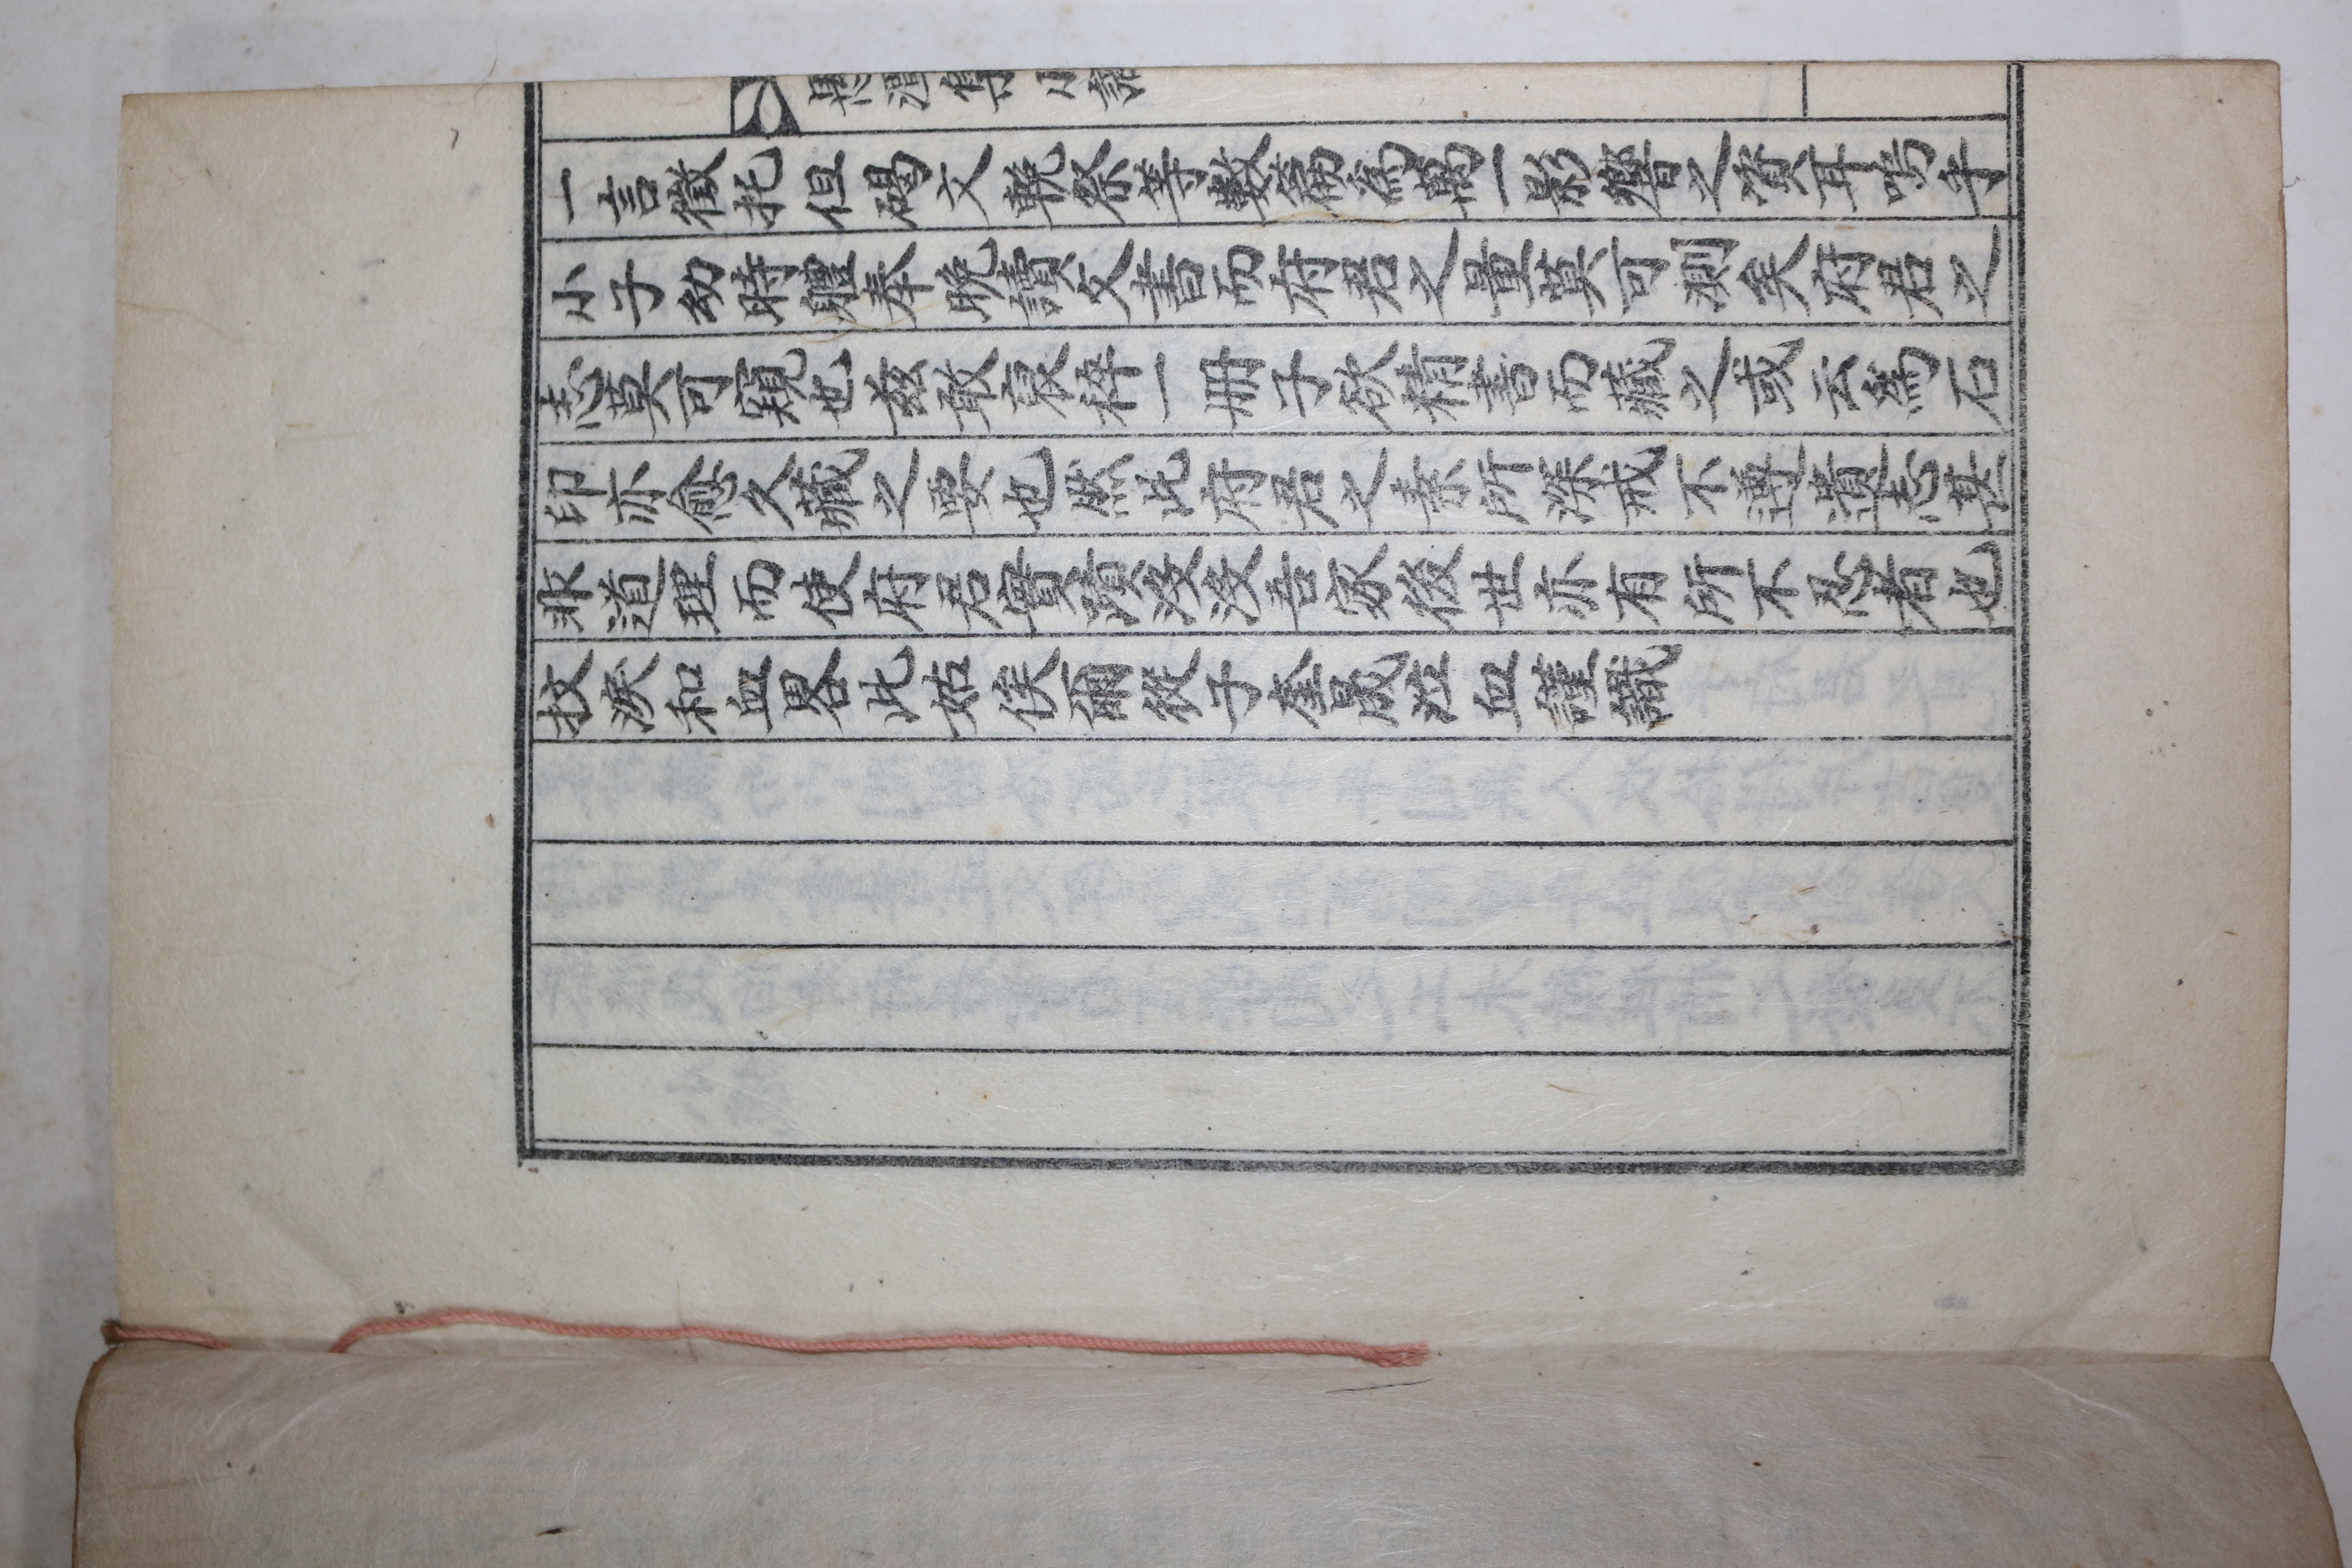 愚潭集 小識
一言徵托但碣文輓祭等數篇爲萬一影響之資耳嗚乎
小子幼時軆奉晩讀文書而府君之量莫可測矣府君之
志莫可窺也玆敢裒稡一冊子欲精書而藏之或云爲石
印亦愈久藏之要也然此府君之素所深戒不遵遺志甚
非道理而使府君實蹟沒沒吾家後世亦有所不忍者也
抆淚和血畧此姑俟爾從子奎晟泣血謹識